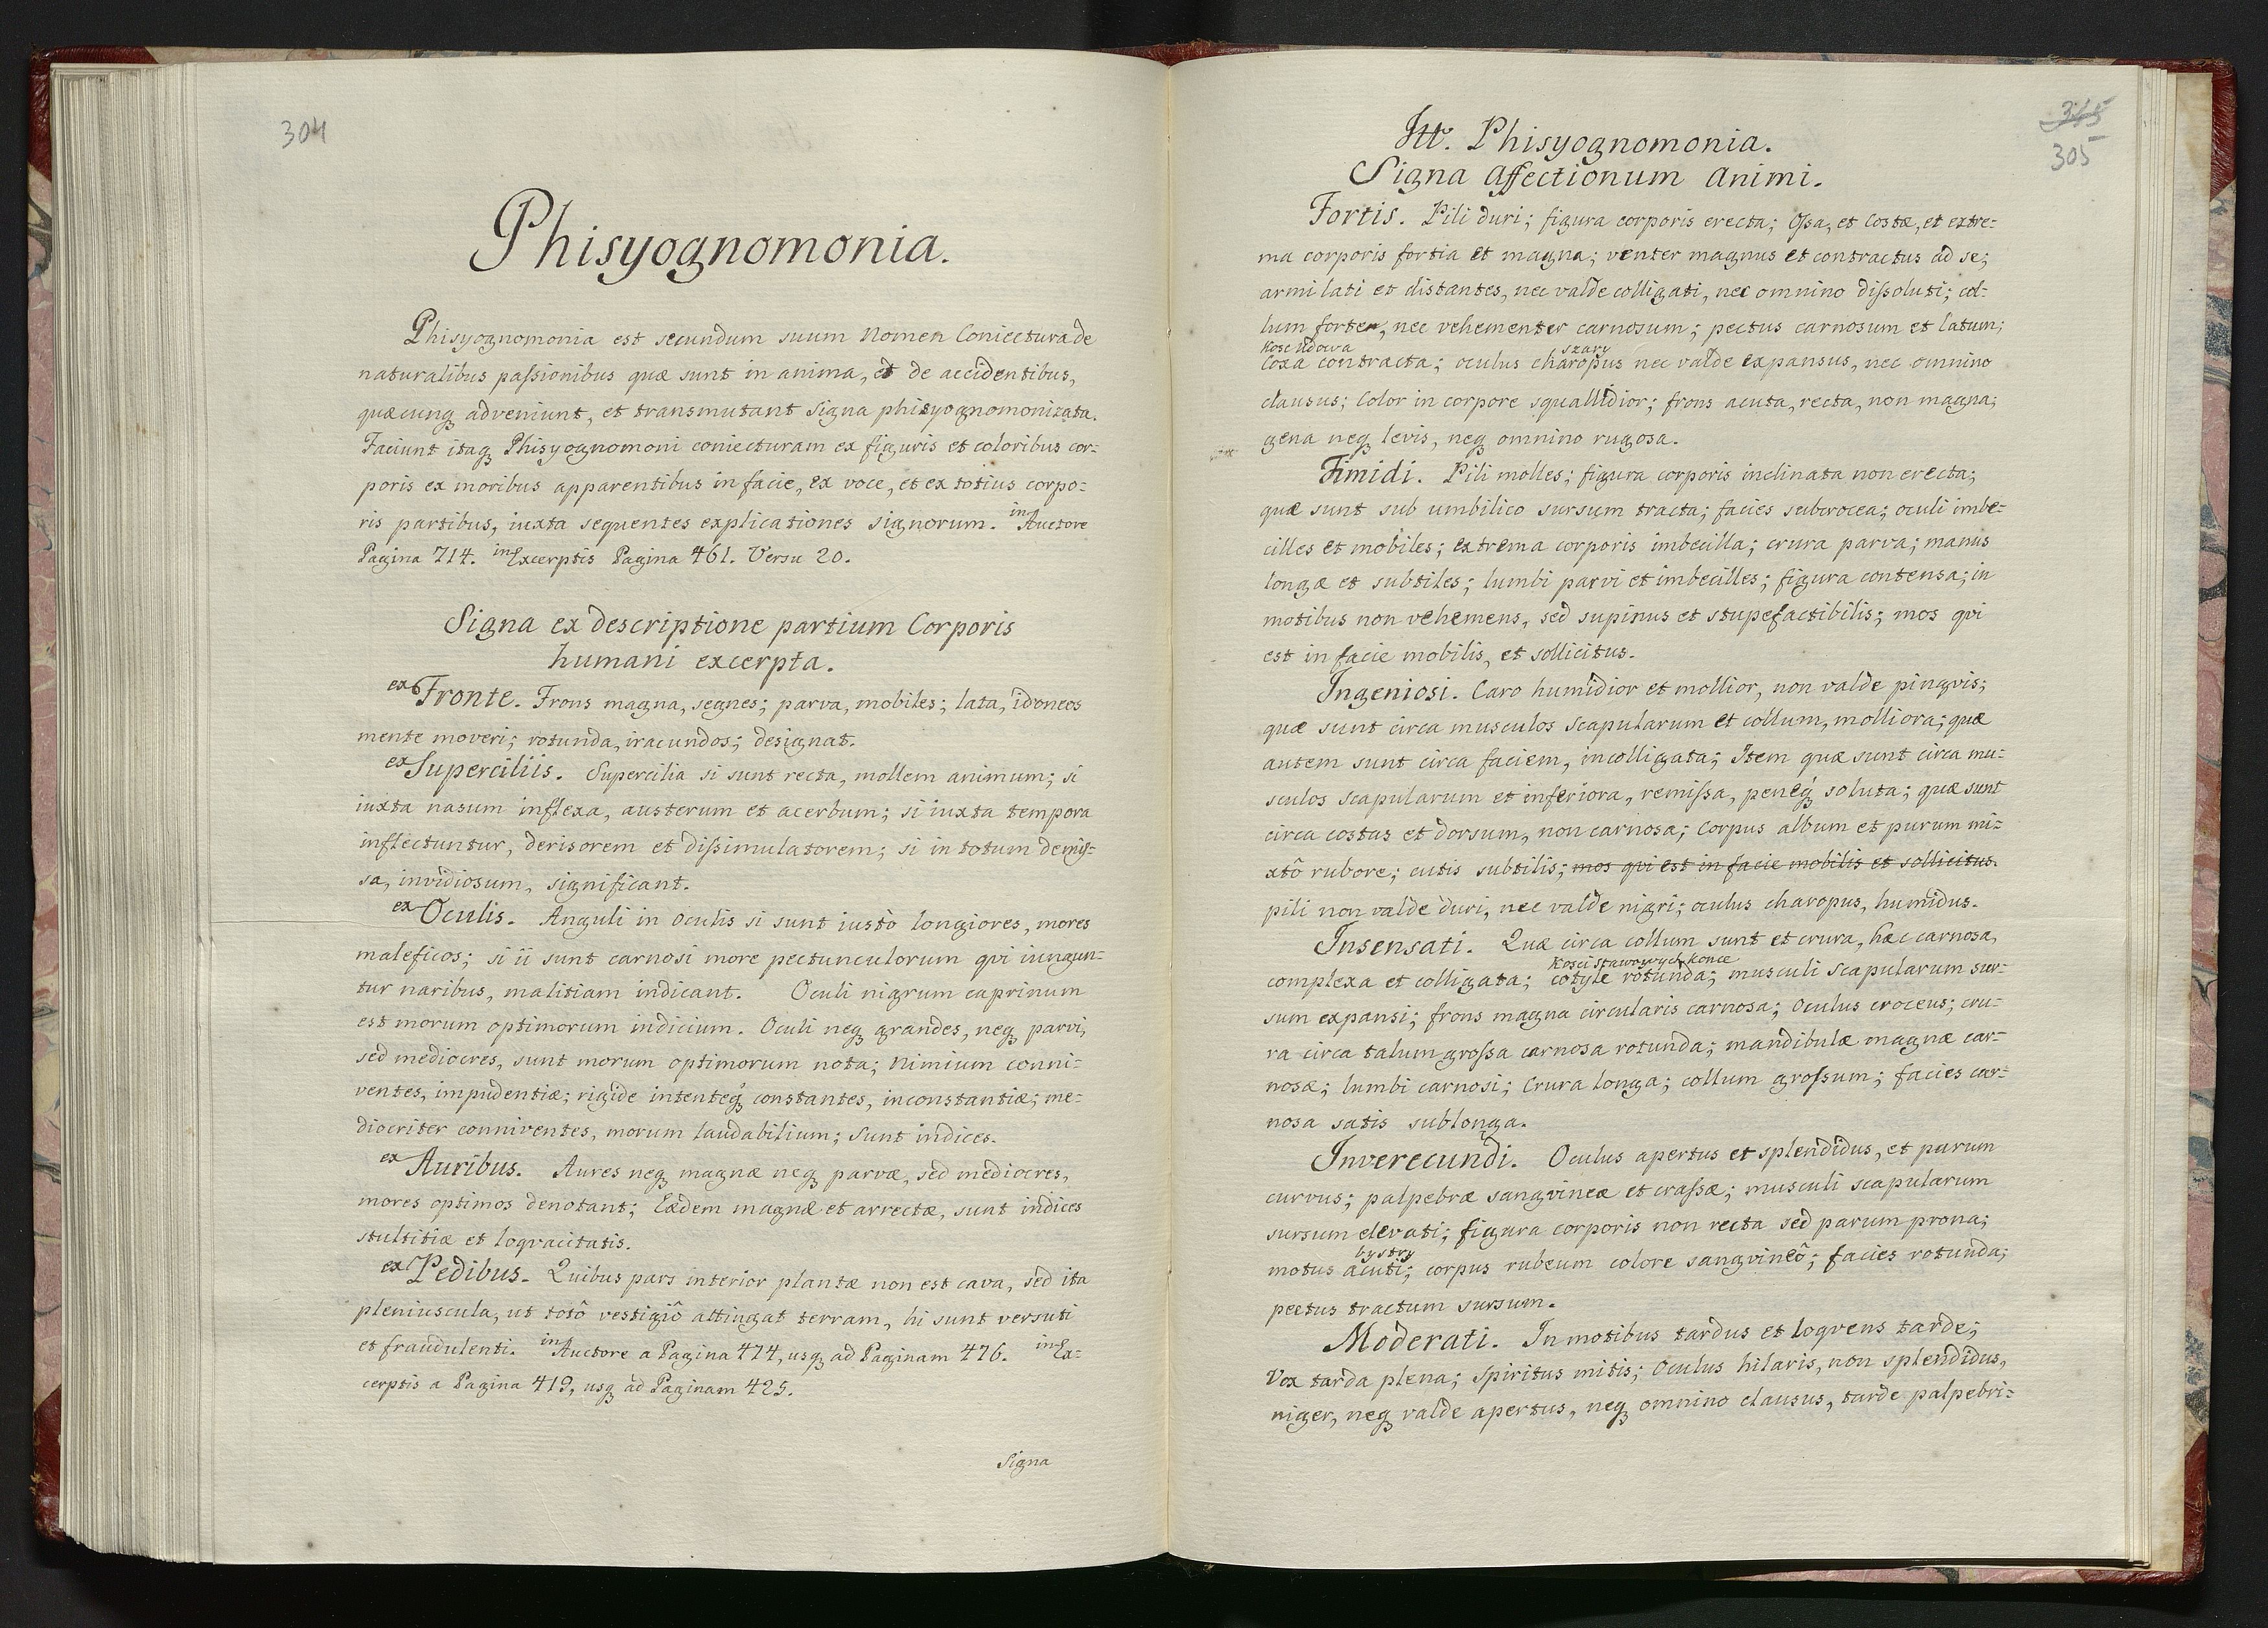 304
Phisyognomonia.
Phisyognomonia est secundum suum Nomen Coniectura de
naturalibus paſsionibus quæ sunt in anima, et de accidentibus,
quæcunq adveniunt, et transmutant Signa phisyognomonizata.
Faciunt itaq Phisyognomoni coniecturam ex figuris et coloribus cor-
poris ex moribus apparentibus in facie, ex voce, et ex totius corpo-
ris partibus, iuxta sequentes explicationes signorum. in Auctore
Pagina 714. in Excerptis Pagina 461. Versu 20.
Signa ex descriptione partium Corporis
humani excerpta.
ex Fronte. Frons magna, segnes; parva, mobiles; lata, idoneos
mente moveri; rotunda, iracundos; designat.
ex Superciliis. Supercilia si sunt recta, mollem animum; si
iuxta nasum inflexa, austerum et acerbum; si iuxta tempora
inflectuntur, derisorem et diſsimulatorem; si in totum demiſ-
sa, invidiosum, significant.
ex Oculis. Anguli in oculis si sunt iustò longiores, mores
maleficos; si ii sunt carnosi more pectunculorum qvi iungun-
tur naribus, malitiam indicant. Oculi nigrum caprinum
est morum optimorum indicium. Oculi neq grandes, neq parvi,
sed mediocres, sunt morum optimorum nota; Nimium conni-
ventes, impudentiæ; rigide intenteq constantes, inconstantiæ; me-
diocriter conniventes, morum laudabilium; sunt indices.
ex Auribus. Aures neq magnæ neq parvæ, sed mediocres,
mores optimos denotant; Eædem magnæ et arrectæ, sunt indices
stultitiæ et loqvacitatis.
ex Pedibus. Quibus pars interior plantæ non est cava, sed ita
pleniuscula, ut totô vestigiô attingat terram, hi sunt versuti
et fraudulenti. in Auctore a Pagina 474, usq ad Paginam 476. in Ex-
cerptis a Pagina 419, usq ad Paginam 425.
Signa
315
305
Phisyognomonia.
Signa Affectionum Animi.
Fortis. Pili duri; figura corporis erecta; Oſsa, et Costæ, et extre-
ma corporis fortia et magna; venter magnus et contractus ad se;
armi lati et distantes, nec valde colligati, nec omnino diſsoluti; col-
lum forte, nec vehementer carnosum; pectus carnosum et latum;
szary
Coxa contracta; oculus charopus nec valde expansus, nec omnino
clausus; Color in corpore squallidior; frons acuta, recta, non magna;
gena neq levis, neq omnino rugosa.
Timidi. Pili molles; figura corporis inclinata non erecta;
quæ sunt sub umbilico sursum tracta; facies subcrocea; oculi imbe-
cilles et mobiles; extrema corporis imbecilla; crura parva; manus
longæ et subtiles; lumbi parvi et imbecilles; figura contensa; in
motibus non vehemens, sed supinus et stupefactibilis; mos qvi
est in facie mobilis, et sollicitus.
Ingeniosi. Caro humidior et mollior, non valde pingvis;
quæ sunt circa musculos scapularum et collum, molliora; quæ
autem sunt circa faciem, incolligata; Item quæ sunt circa mu-
sculos scapularum et inferiora, remiſsa, peneq soluta; quæ sunt
circa costas et dorsum, non carnosa; Corpus album et purum mi-
xtô rubore; cutis subtilis; mos qvi est in facie mobilis et sollicitus.
pili non valde duri, nec valde nigri; oculus charopus, humidus.
Insensati. Quæ circa collum sunt et crura, hæc carnosa,
Kosci stawowych konce
complexa et colligata; cotyle rotunda; musculi scapularum sur-
sum expansi; frons magna circularis carnosa; Oculus croceus; cru-
ra circa talum groſsa carnosa rotunda; mandibulæ magnæ car-
nosæ; lumbi carnosi; Crura longa; collum groſsum; facies car-
nosa satis sublonga.
Inverecundi. Oculus apertus et splendidus, et parum
curvus; palpebræ sangvineæ et craſsæ; musculi scapularum
sursum elevati; figura corporis non recta sed parum prona;
bystry
motus acuti; corpus rubeum colore sangvineô; facies rotunda;
pectus tractum sursum.
Moderati. In motibus tardus et loqvens tarde;
Vox tarda plena; Spiritus mitis; Oculus hilaris, non splendidus,
niger, neq valde apertus, neq omnino clausus, tarde palpebri-